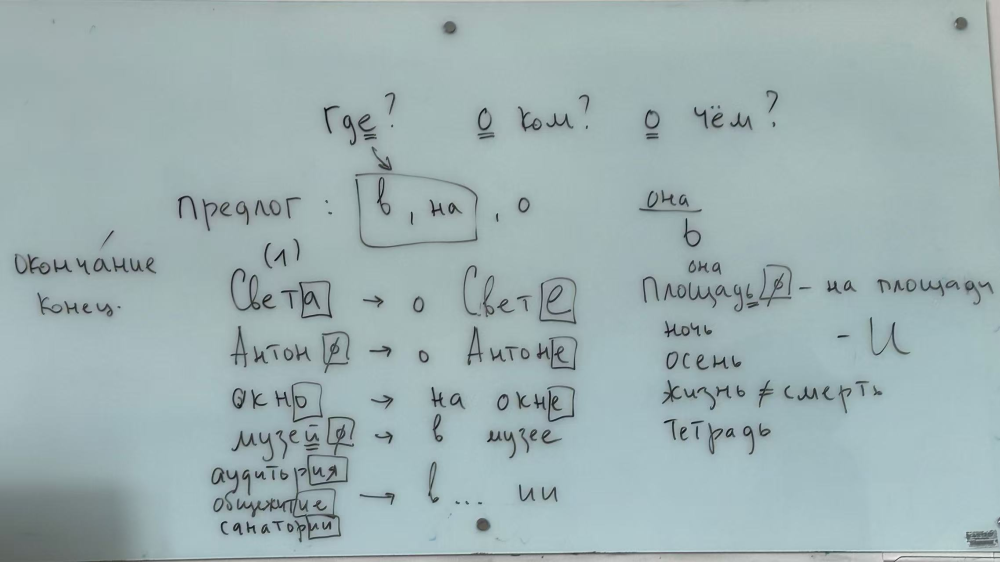 Где? о ком? о чём?
Предлог : в, на, о
окончáние
конец.
(1)
Света → о Свете
Антон ø → о Антоне
окно → на окне
музей ø → в музее
аудитьрия
общежитие → в ... ии
санаторий
она
ь
она
Площадь ø - на площади
ночь
осень - И
жизнь ≠ смерть
тетрадь